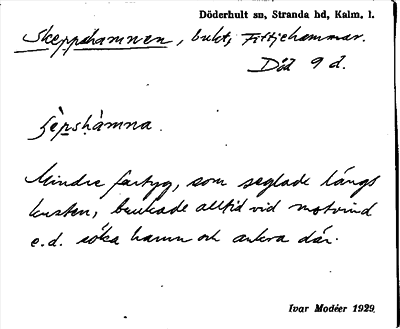 Döderhult sn, Stranda hd, Kalm. l.
Skeppshamnen, bukt, Fittjehammar.
Död 9 d.
sèpshàmna.
Mindre fartyg, som seglade längs
kusten, brukade alltid vid motvind
e.d. söka hamn och ankra där.
Ivar Modéer 1929.